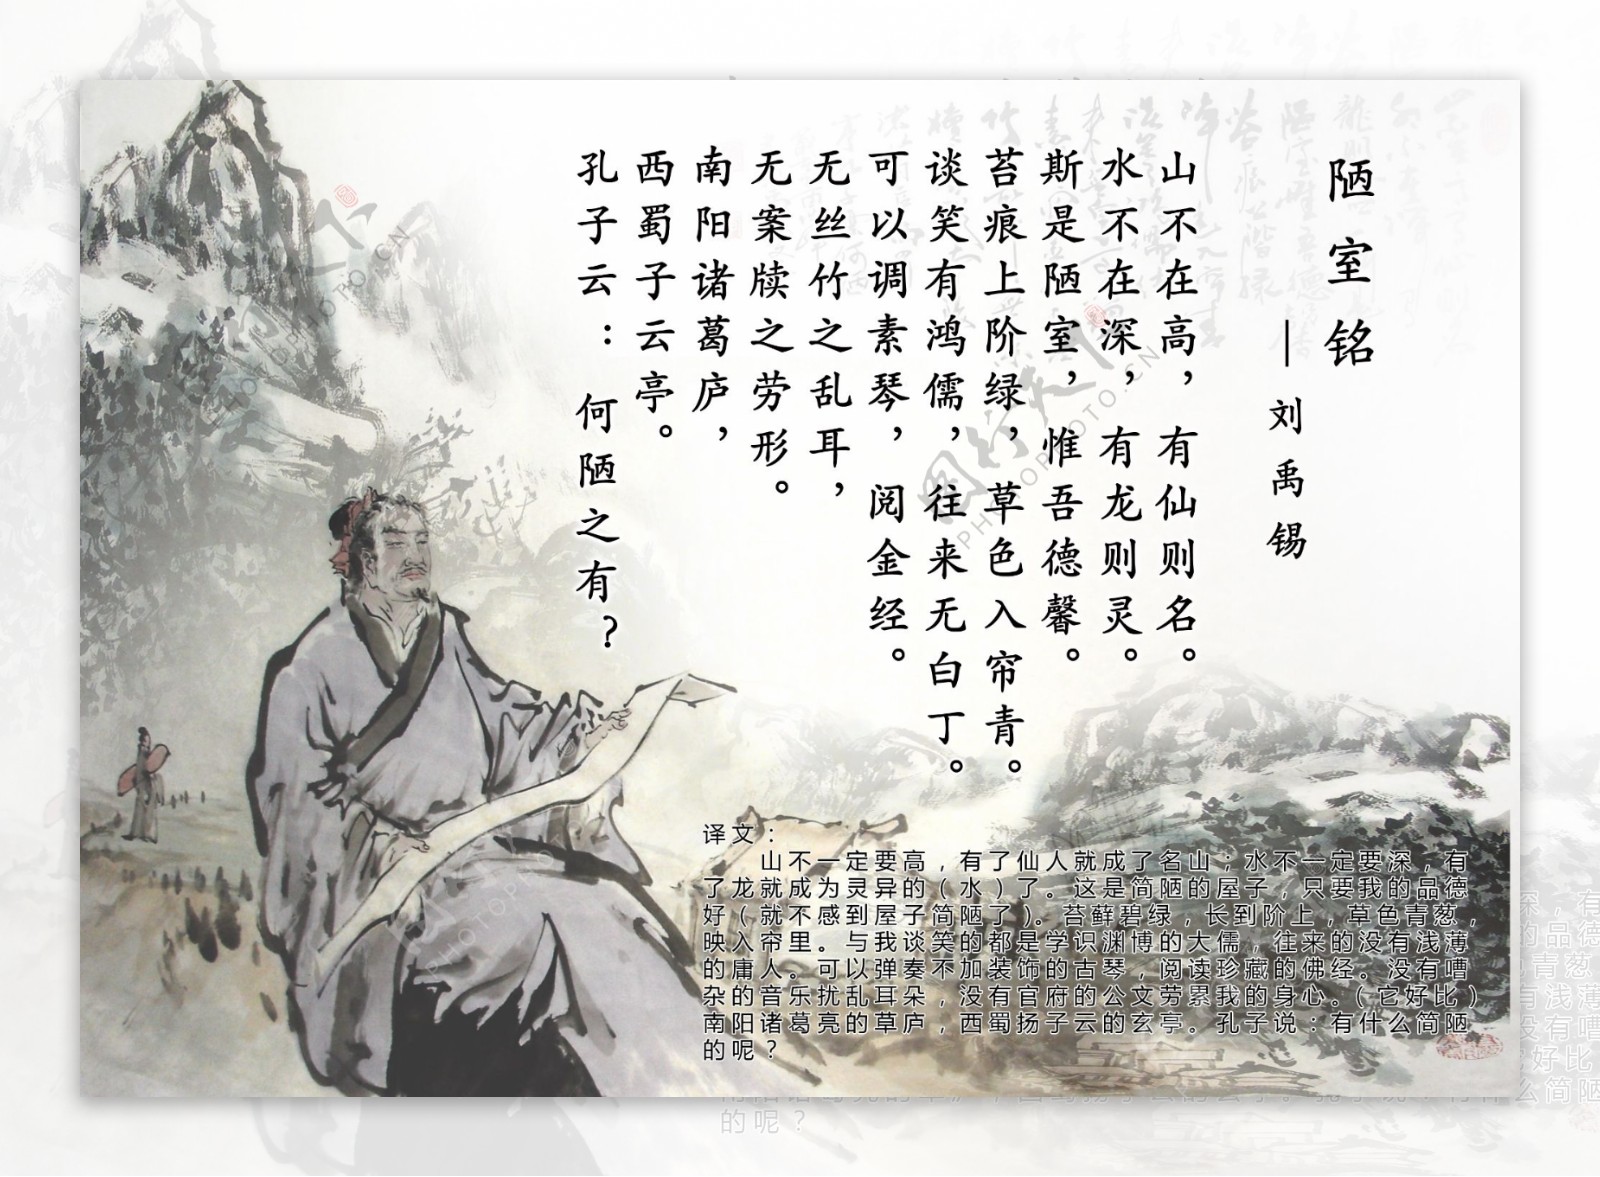 陋室铭
—刘禹锡
山不在高，有仙则名。
水不在深，有龙则灵。
斯是陋室，惟吾德馨。
苔痕上阶绿，草色入帘青。
谈笑有鸿儒，往来无白丁。
可以调素琴，阅金经。
无丝竹之乱耳，
无案牍之劳形。
南阳诸葛庐，
西蜀子云亭。
孔子云：何陋之有？
译文：
山不一定要高，有了仙人就成了名山；水不一定要深，有
了龙就成为灵异的（水）了。这是简陋的屋子，只要我的品德
好（就不感到屋子简陋了）。苔藓碧绿，长到阶上，草色青葱，
映入帘里。与我谈笑的都是学识渊博的大儒，往来的没有浅薄
的庸人。可以弹奏不加装饰的古琴，阅读珍藏的佛经。没有嘈
杂的音乐扰乱耳朵，没有官府的公文劳累我的身心。（它好比）
南阳诸葛亮的草庐，西蜀扬子云的玄亭。孔子说：有什么简陋
的呢？